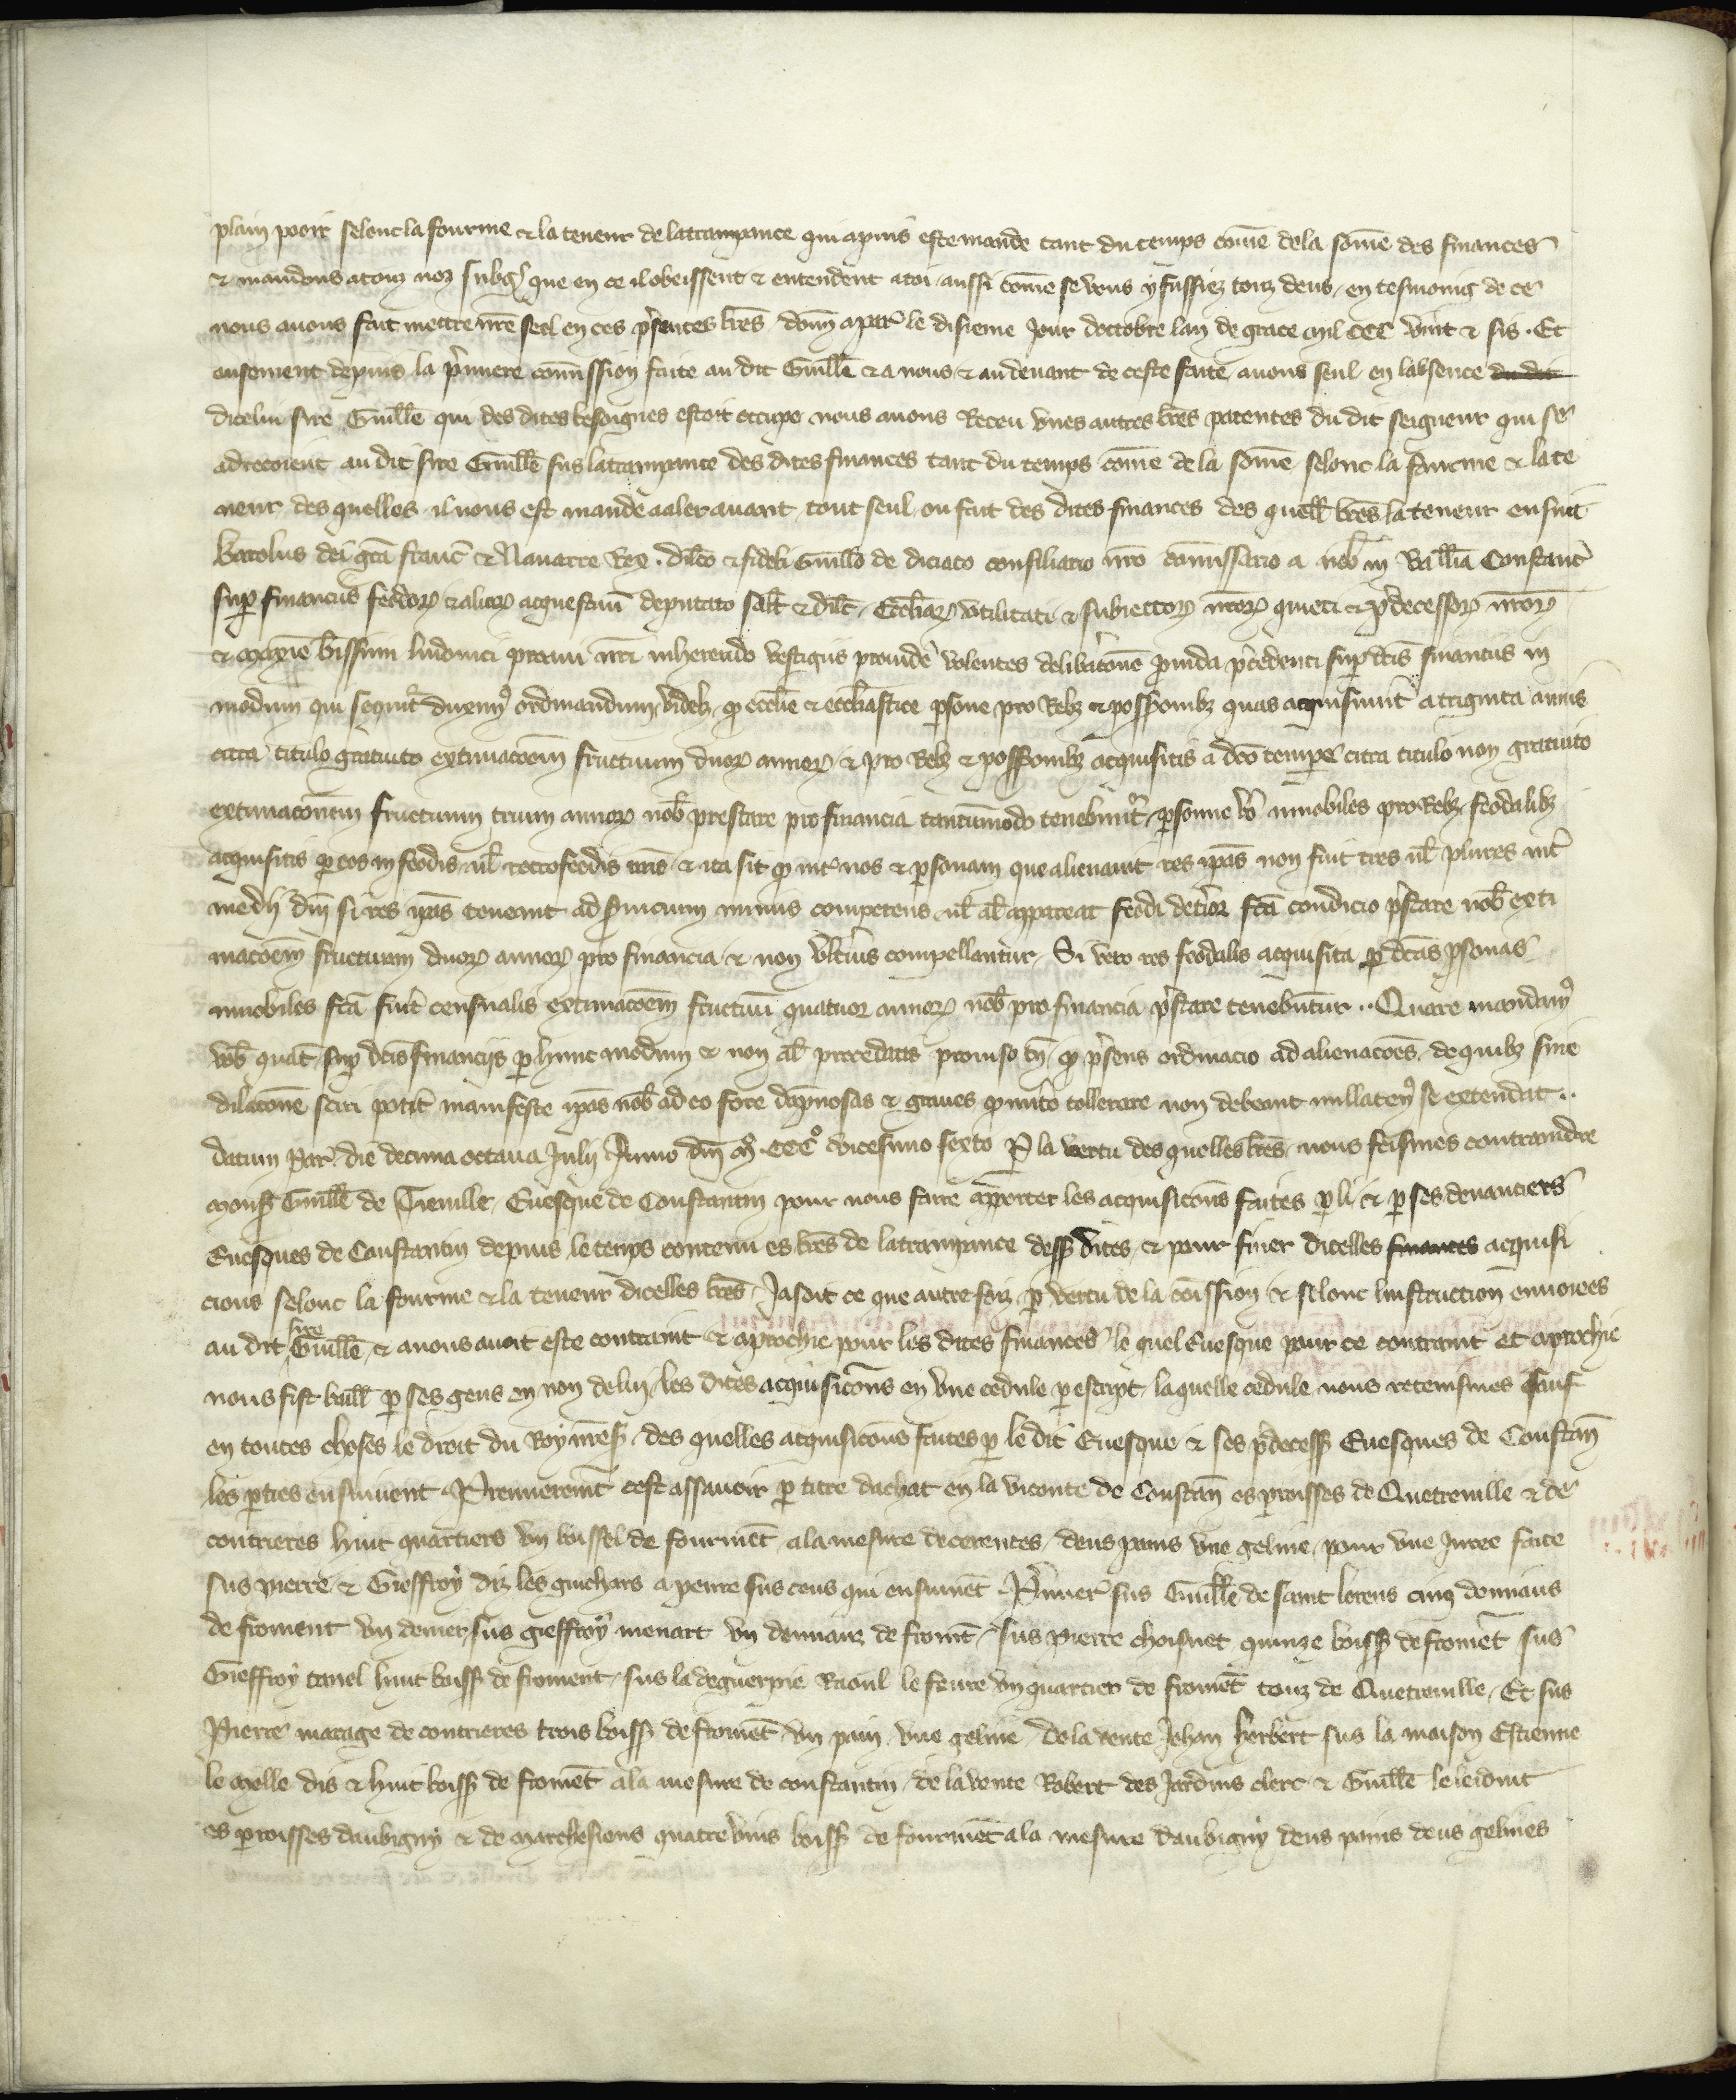 plain pooir selonc la fourme & la teneur de latrampance qui apres este mande tant du temps cōme de la sōme des finances
& mandons a touz noz subgꝫ que en ce il obeissent & entendent a toi aussi cōme se vous y fussiez touz deus en tesmoing de ce
nous auons fait mettre nrē seel en ces pñsentes lrēs donn a par̃ le disieme jour doctobre lan de grace mil CCC vint & sis . Et
ensement depuis la p̃miere cōmission faite au dit Guillē & a nous & au deuant de ceste faite auons seul en labsence du dit
dicelui sire Guillē qui des dites besoignes estoit occupe nous auons Receu vnes autres lrēs patentes du dit seigneur qui se
adrecoient au dit sire Guillē sus latrampance des dites finances tant du temps cōme de la sōme selonc la fourme & la te
neur des quelles il nous est mande a aler auant tout seul ou fait des dites finances des quell lrēs la teneur ensuit
Karolus dei grā franc̃ & Nauarre Rex . dilcō & fideli Guillō de diciaco consiliario nrō cōmissario a nob̄ in Ballīa Constanc̃
sup̱ financiis feodoꝝ & alioꝝ acquestuū deputato salt̄ & dilc̄ . Eccliaꝝ vtilitati & subiectoꝝ nrōꝝ quieti & p̃decessoꝝ nrōꝝ
& maxīe bīssimi ludouici proaui nrī inherendo vestigiis prouidē volentes delib̃acōne prouida p̃cedenti sup̱ dc̄is financiis in
modum qui sequit̃ duxim⁹ ordinandum videlꝫ ꝙ ecclīe & ecclīastice ꝑsone pro Rebꝫ & possꝫionibꝫ quas acquisiuer̃t a triginta annis
citra titulo gratuito extimacōem fructuum duoꝝ annoꝝ & pro Rebꝫ & possꝫionibꝫ acquisitis a dcō temꝑe citra titulo non gratuito
extimacōnem fructuum trium annoꝝ nob̄ prestare pro financia tantūmodo tenebunt̃ . ꝑsone v̊o innobiles pro Rebꝫ feodalibꝫ
acquisitis ꝑ eos in feodis ul̄ retrofeodis nrīs & ita sit ꝙ int̃ nos & ꝑsonam que alienauit res ip̄as non sint tres ul̄ plures int̃
medij dn̄i si res ip̄as teneant ad seruicium minus competens ul̄ al̄ appareat feodi det̃ior fcā condicio p̃stare nob̄ exti
macōem fructuum duoꝝ annoꝝ pro financia & non vlt̃ius compellantur . Si vero res feodalis acquisita ꝑ dc̄as ꝑsonas
innobiles fcā fuit̃ censualis extimacōem fructuū quatuor annoꝝ nob̄ pro financia p̃stare tenebuntur .. Quare mandam⁹
vob̄ quat̄ sup̱ dc̄is financijs ꝑ hunc modum & non al̄ procedatis prouiso tn̄ ꝙ p̃sens ordinacio ad alienacōes de quibꝫ sine
dilacōne sciri pot̃it manifeste ip̄as nob̄ ad eo fore dāpnosas & graues ꝙ merito tollerare non debeant nullaten⁹ se extendat ..
datum par̃ die decima octaua Julij Anno dn̄i M̊ . CCC̊ vicesimo sexto Ꝑ la vertu des quelles lrēs nous feismes contraindre
monsꝫ Guillē de Tieuille Euesque de Constantin pour nous faire aporter les acquisicōns faites ꝑ li & ꝑ ses deuanciers
Euesques de Constantin depuis le temps contenu es lrēs de latrampance dessꝫ dites & pour finer dicelles finances acquisi
cions selonc la fourme & la teneur dicelles lrēs . Jasoit ce que autre foiz ꝑ vertu de la cōission & selonc linstruction enuoiees
au dit sire Guillē & a nous auoit este contraint & aprochie pour les dites finances le quel Euesque pour ce contraint et aprochie
nous fist baill ꝑ ses gens en non de luy les dites acquisicōns en vne cedule ꝑ escript laquelle cedule nous retenismes sauf
en toutes choses le droit du Roy nrēsꝫ des quelles acquisicōns faites ꝑ le dit Euesque & ses p̃decessꝫ Euesques de Constan̄
les ꝑties ensiuuent . Premierem̄t cest assauoir ꝑ titre dachat en la viconte de Constan̄ es ꝑroisses de Quetreuille & de
contrieres huit quartiers vn boissel de fourmēt a la mesure de cerences deus pains vne geline pour vne Juree faite
sus pierre & Gieffroy diz les guichars a penre sus ceus qui ensiuuēt . P̃mier̃ sus Guillē de saint lorens cinq demiaus
de froment vn denier, sus gieffroy menart vn demiauz de fromēt . sus pierre choisnet quinze boissꝫ de fromēt sus
Gieffroy tanel huit boissꝫ de froment . sus la deguerpie Raoul le feure vn quartier de fromēt touz de Quetreuille . Et sus
Pierre marage de contrieres trois boissꝫ de fromēt vn pain vne geline . de la vente Jehan herbert sus la maison Estienne
le melle dis & huit boissꝫ de fromēt a la mesure de constantin . de la vente Robert des Jardins clerc & Guillē le leidout
es ꝑroisses daubigny & de marchesieus quatre vins boissꝫ de fourmēt a la mesure daubigny deus pains deus gelines